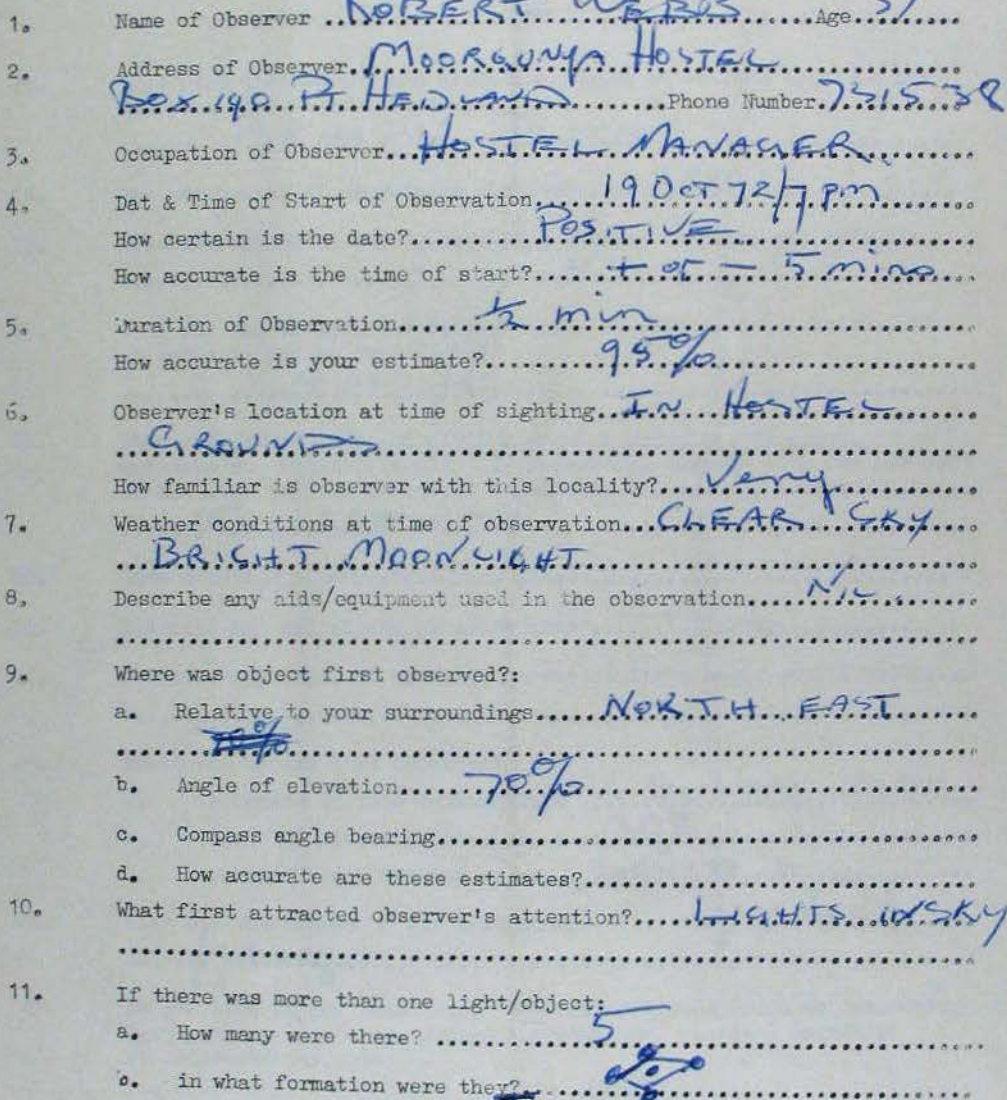 1. Name of Observer ..ROBERT WEBB......Age 37........
2. Address of Observer.MOORGUNYA HOSTEL
BOX 140 PT HEDLAND........Phone Number.731538
3. Occupation of Observer...HOSTEL MANAGER
4. Dat & Time of Start of Observation......19 OCT 72/7 pm
How certain is the date?...........POSITIVE
How accurate is the time of start?.......+ or – 5 mins
5. Duration of Observation.......½ min
How accurate is your estimate?..........95%
6. Observer's location at time of sighting..IN HOSTEL
GROUNDS
How familiar is observer with this locality?....Very
7. Weather conditions at time of observation...CLEAR SKY
BRIGHT MOONLIGHT
8. Describe any aids/equipment used in the observation.....NIL
9. Where was object first observed?:
a. Relative to your surroundings.....NORTH EAST
b. Angle of elevation.......70%
c. Compass angle bearing
d. How accurate are these estimates?
10. What first attracted observer's attention?.....LIGHTS IN SKY
11. If there was more than one light/object:
a. How many were there? .............5
b. in what formation were they?